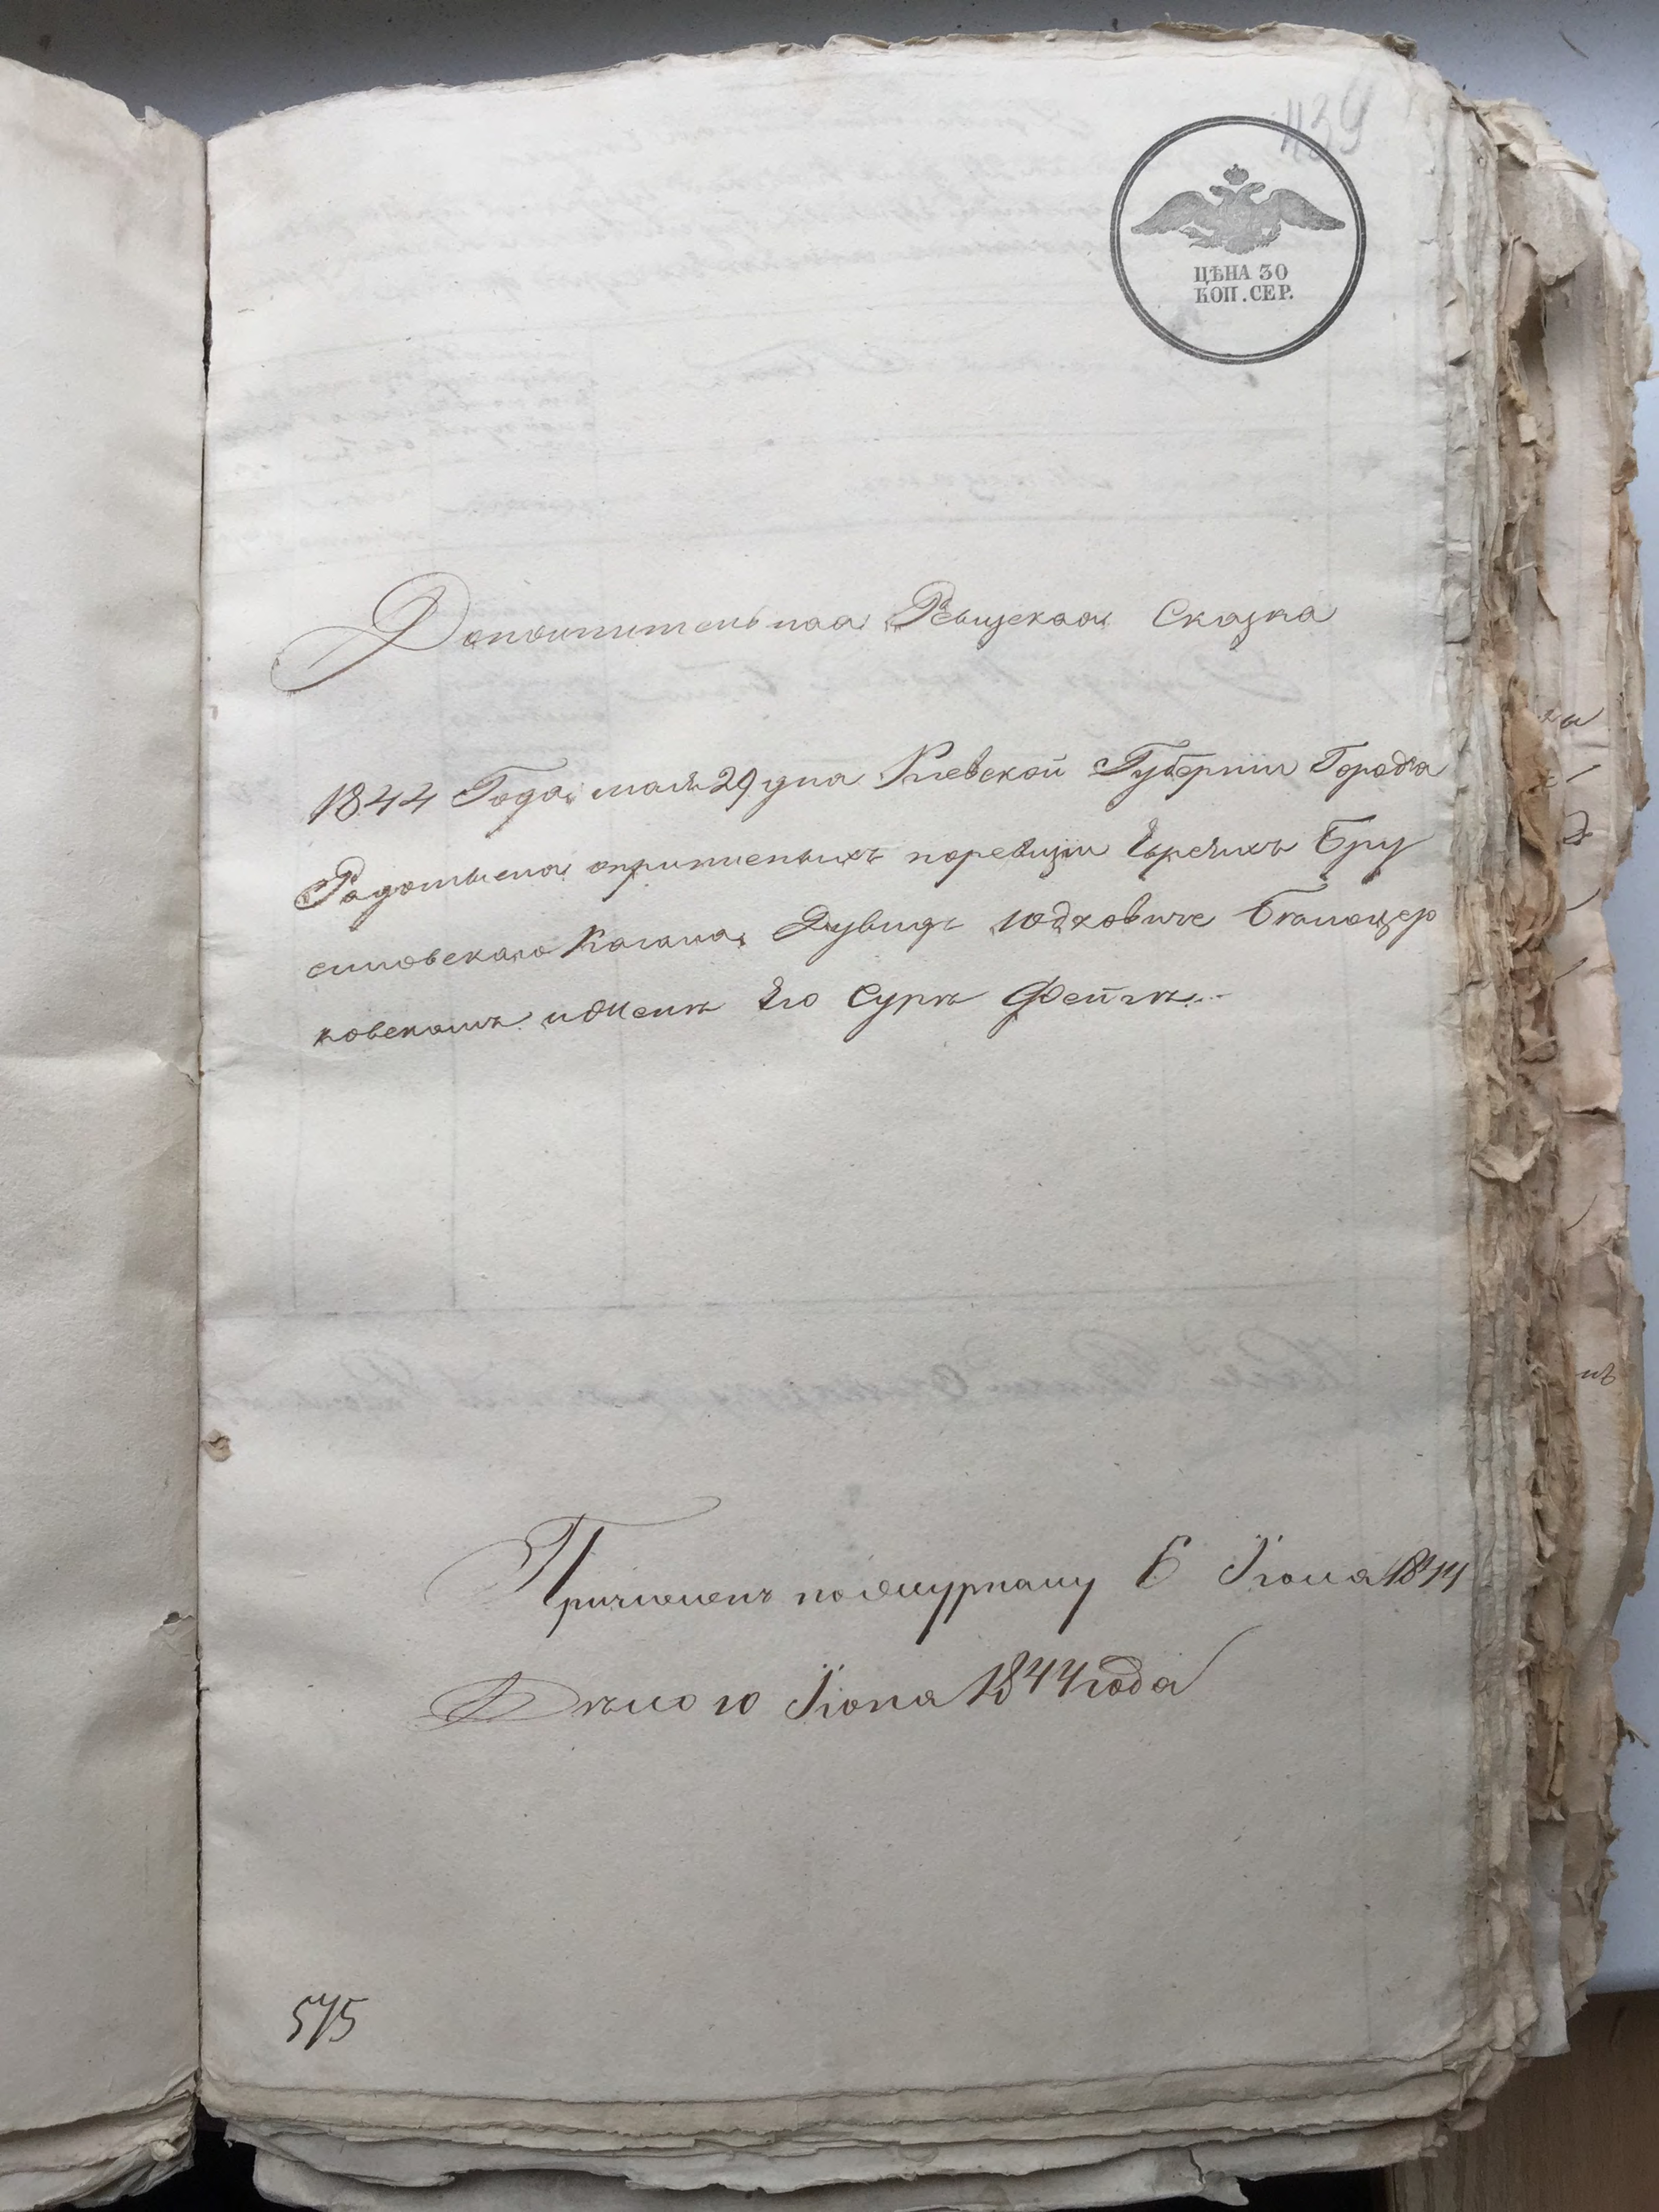 439
ЦѢНА 30
КОП. СЕР.
Дополнительная Ревизская Сказка
1844 Года мая 29 дня Киевской Губернии Города
Радомысля опричисленыхъ поревизии Евреихъ Бру
силовскаго Кагала Дувидъ Юдковиче Бялоцер
ковскомъ иЖенѣ Его Сурѣ Фейгѣ
Причисленъ пожурналу 6 Іюня 1844
Дѣло 10 Іюня 1844 года
575